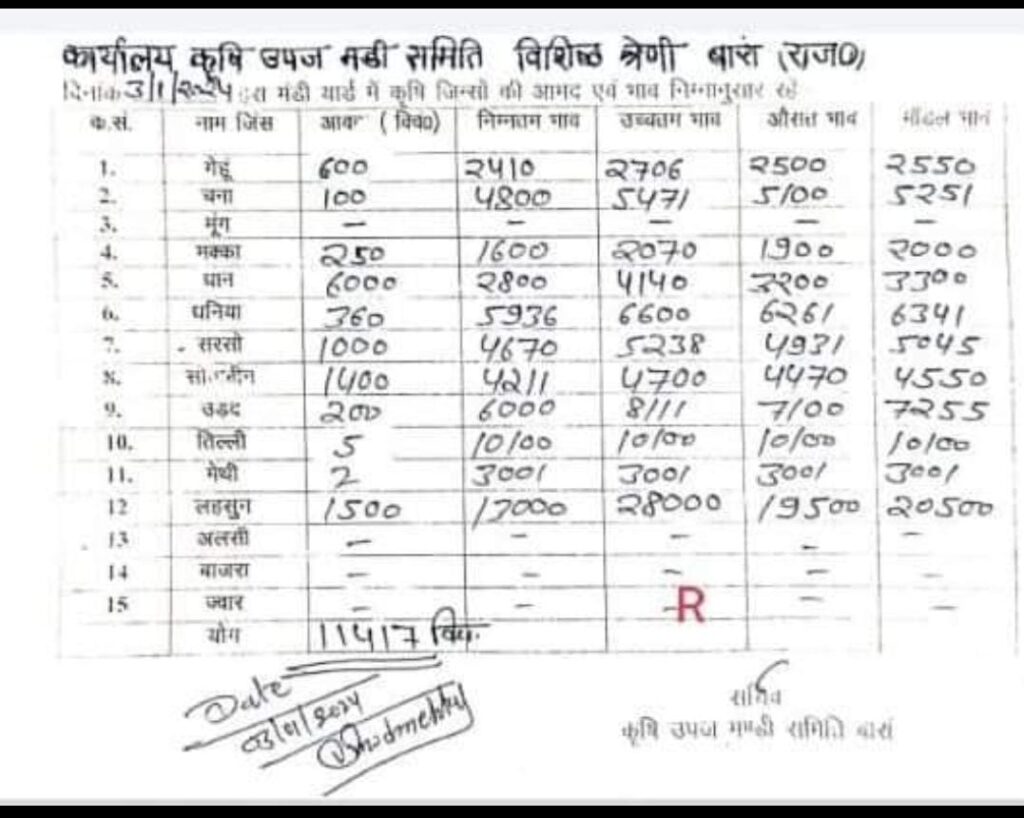 कार्यालय कृषि उपज मडी समिति विशिष्ठ श्रेणी बारां (राज0)
दिनांक 3/1/2024 इस मंडी यार्ड में कृषि जिन्सो की आमद एवं भाव निम्नानुसार रहे
क.सं. नाम जिंस आवक (क्वि0) निम्नतम भाव उच्चतम भाव औसत भाव मॉडल भाव
1. गेहूं 600 2410 2706 2500 2550
2. चना 100 4800 5471 5100 5251
3. मूंग – – – – –
4. मक्का 250 1600 2070 1900 2000
5. धान 6000 2800 4140 3200 3300
6. धनिया 360 5936 6600 6261 6341
7. सरसो 1000 4670 5238 4931 5045
8. सोयाबीन 1400 4211 4700 4470 4550
9. उड़द 200 6000 8111 7100 7255
10. तिल्ली 5 10100 10100 10100 10100
11. मेथी 2 3001 3001 3001 3001
12 लहसुन 1500 13000 28000 19500 20500
13 अलसी – – – – –
14 बाजरा – – – – –
15 ज्वार – – – – –
R
योग 11417 क्वि.
Date
03/01/2024
सचिव
कृषि उपज मण्डी समिति बारां